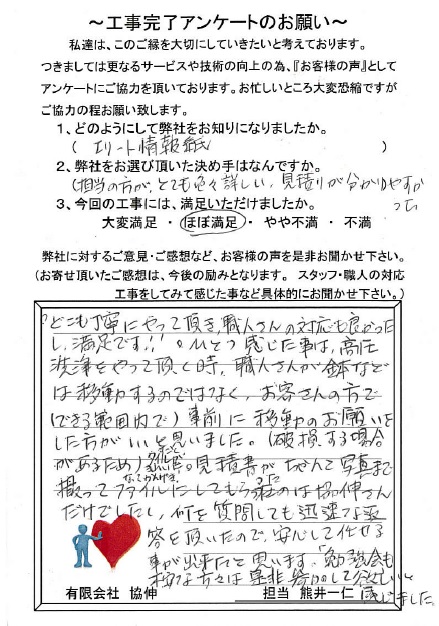 ～工事完了アンケートのお願い～
私達は、このご縁を大切にしていきたいと考えております。
つきましては更なるサービスや技術の向上の為、『お客様の声』として
アンケートにご協力を頂いております。お忙しいところ大変恐縮ですが
ご協力の程お願い致します。
1、どのようにして弊社をお知りになりましたか。
( エリート情報紙 )
2、弊社をお選び頂いた決め手はなんですか。
(担当の方が、とても色々詳しい、見積りが分かりやすか
った
3、今回の工事には、満足いただけましたか。
大変満足 ・ ほぼ満足 ・ やや不満 ・ 不満
弊社に対するご意見・ご感想など、お客様の声を是非お聞かせ下さい。
(お寄せ頂いたご感想は、今後の励みとなります。 スタッフ・職人の対応
工事をしてみて感じた事など具体的にお聞かせ下さい。)
とても丁寧にやって頂き、職人さんの対応も良かった
し、満足です!! ひとつ感じた事は、高圧
洗浄をやって頂く時、職人さんが鉢などで
は移動するのではなく、お客さんの方で
(できる範囲内で)事前に移動のお願いを
した方がいいと思いました。(破損する場合
があるため)見積書がちゃんと写真まで
撮ってファイルにしてもらったのは協伸さん
だけでしたし、何を質問しても迅速な返
答を頂いたので、安心して任せる
事が出来たと思います。「勉強会も
是非参加して欲しいと
感じました。
有限会社 協伸
担当 熊井一仁